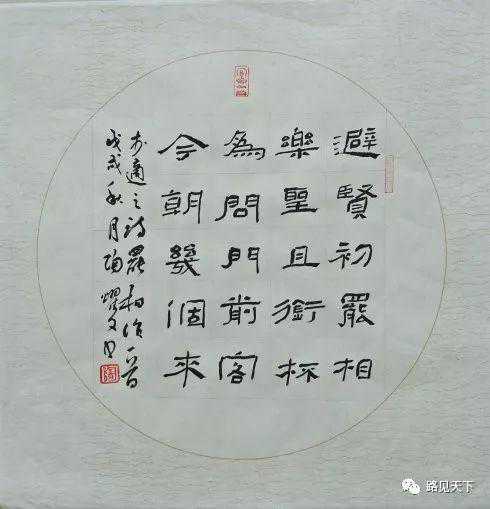 避賢初罷相
樂聖且銜杯
為問門前客
今朝幾個來
李適之詩罷相作一首
戊戌秋月陶耀文書
路见天下